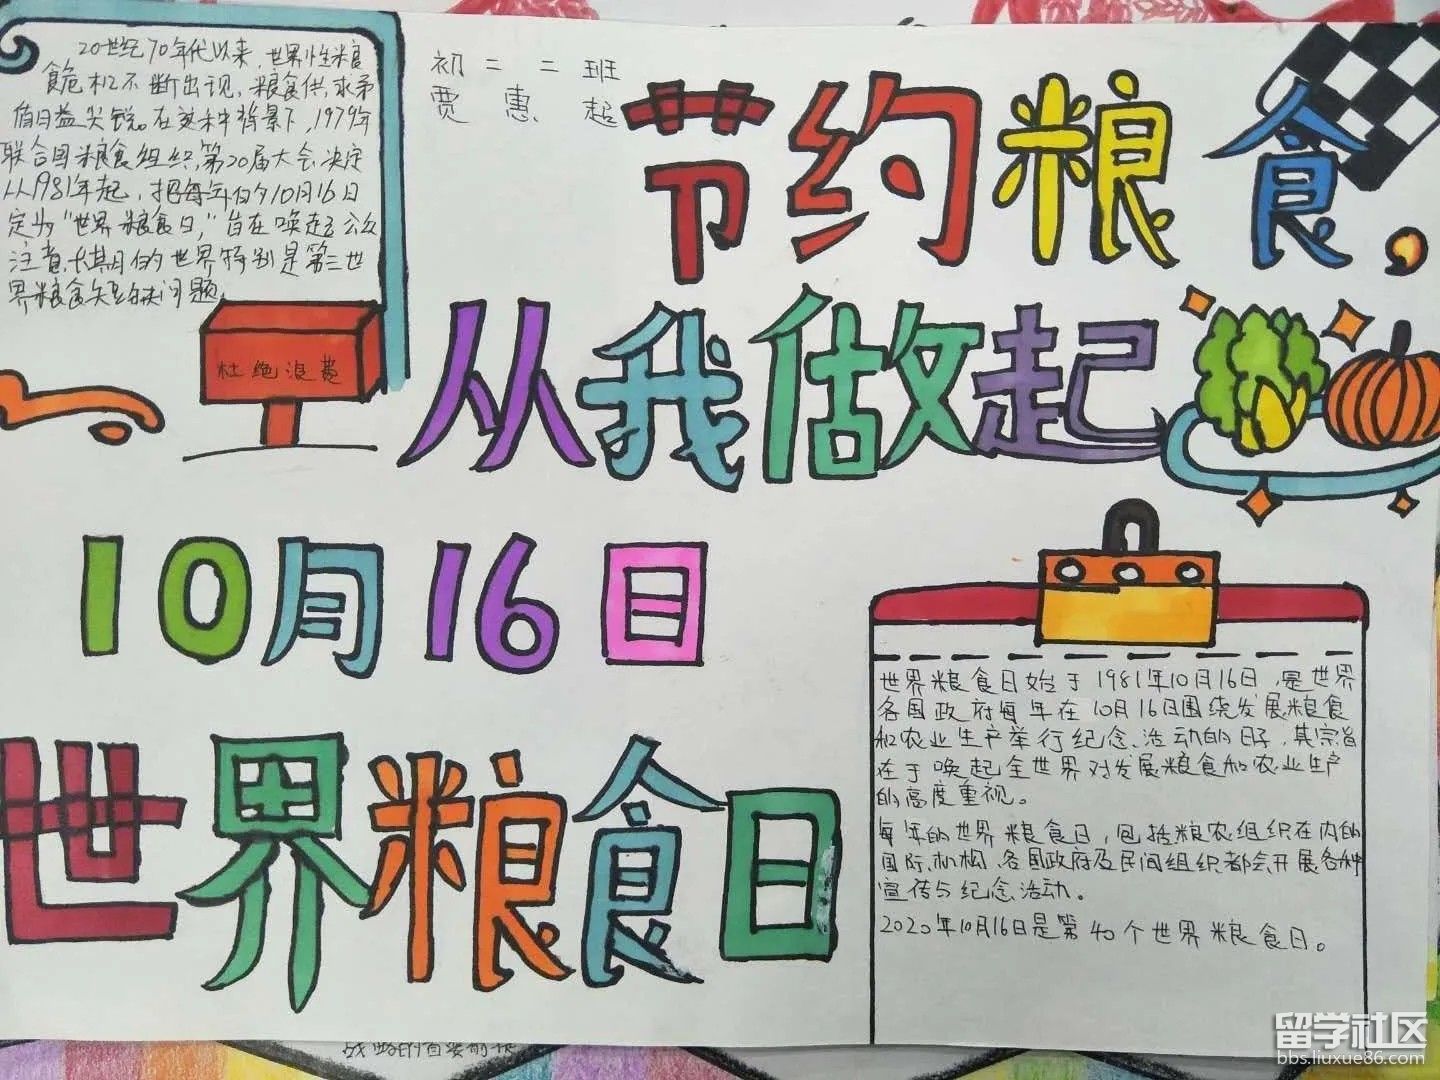 20世纪70年代以来，世界性粮
食危机不断出现，粮食供求矛
盾日益尖锐。在这种背景下，1979年
联合国粮食组织，第20届大会决定
从1981年起，把每年的10月16日
定为“世界粮食日，”旨在唤起公众
注意长期的世界特别是第三世
界粮食短缺问题。
初二二班
贾惠超
节约粮食，
从我做起
杜绝浪费
10月16日
世界粮食日
世界粮食日始于1981年10月16日，是世界
各国政府每年在10月16日围绕发展粮食
和农业生产举行纪念活动的日子，其宗旨
在于唤起全世界对发展粮食和农业生产
的高度重视。
每年的世界粮食日，包括粮农组织在内的
国际机构，各国政府及民间组织都会开展各种
宣传与纪念活动。
2020年10月16日是第40个世界粮食日。
战略的首要前提
留学社区
bbs.liuxue86.com